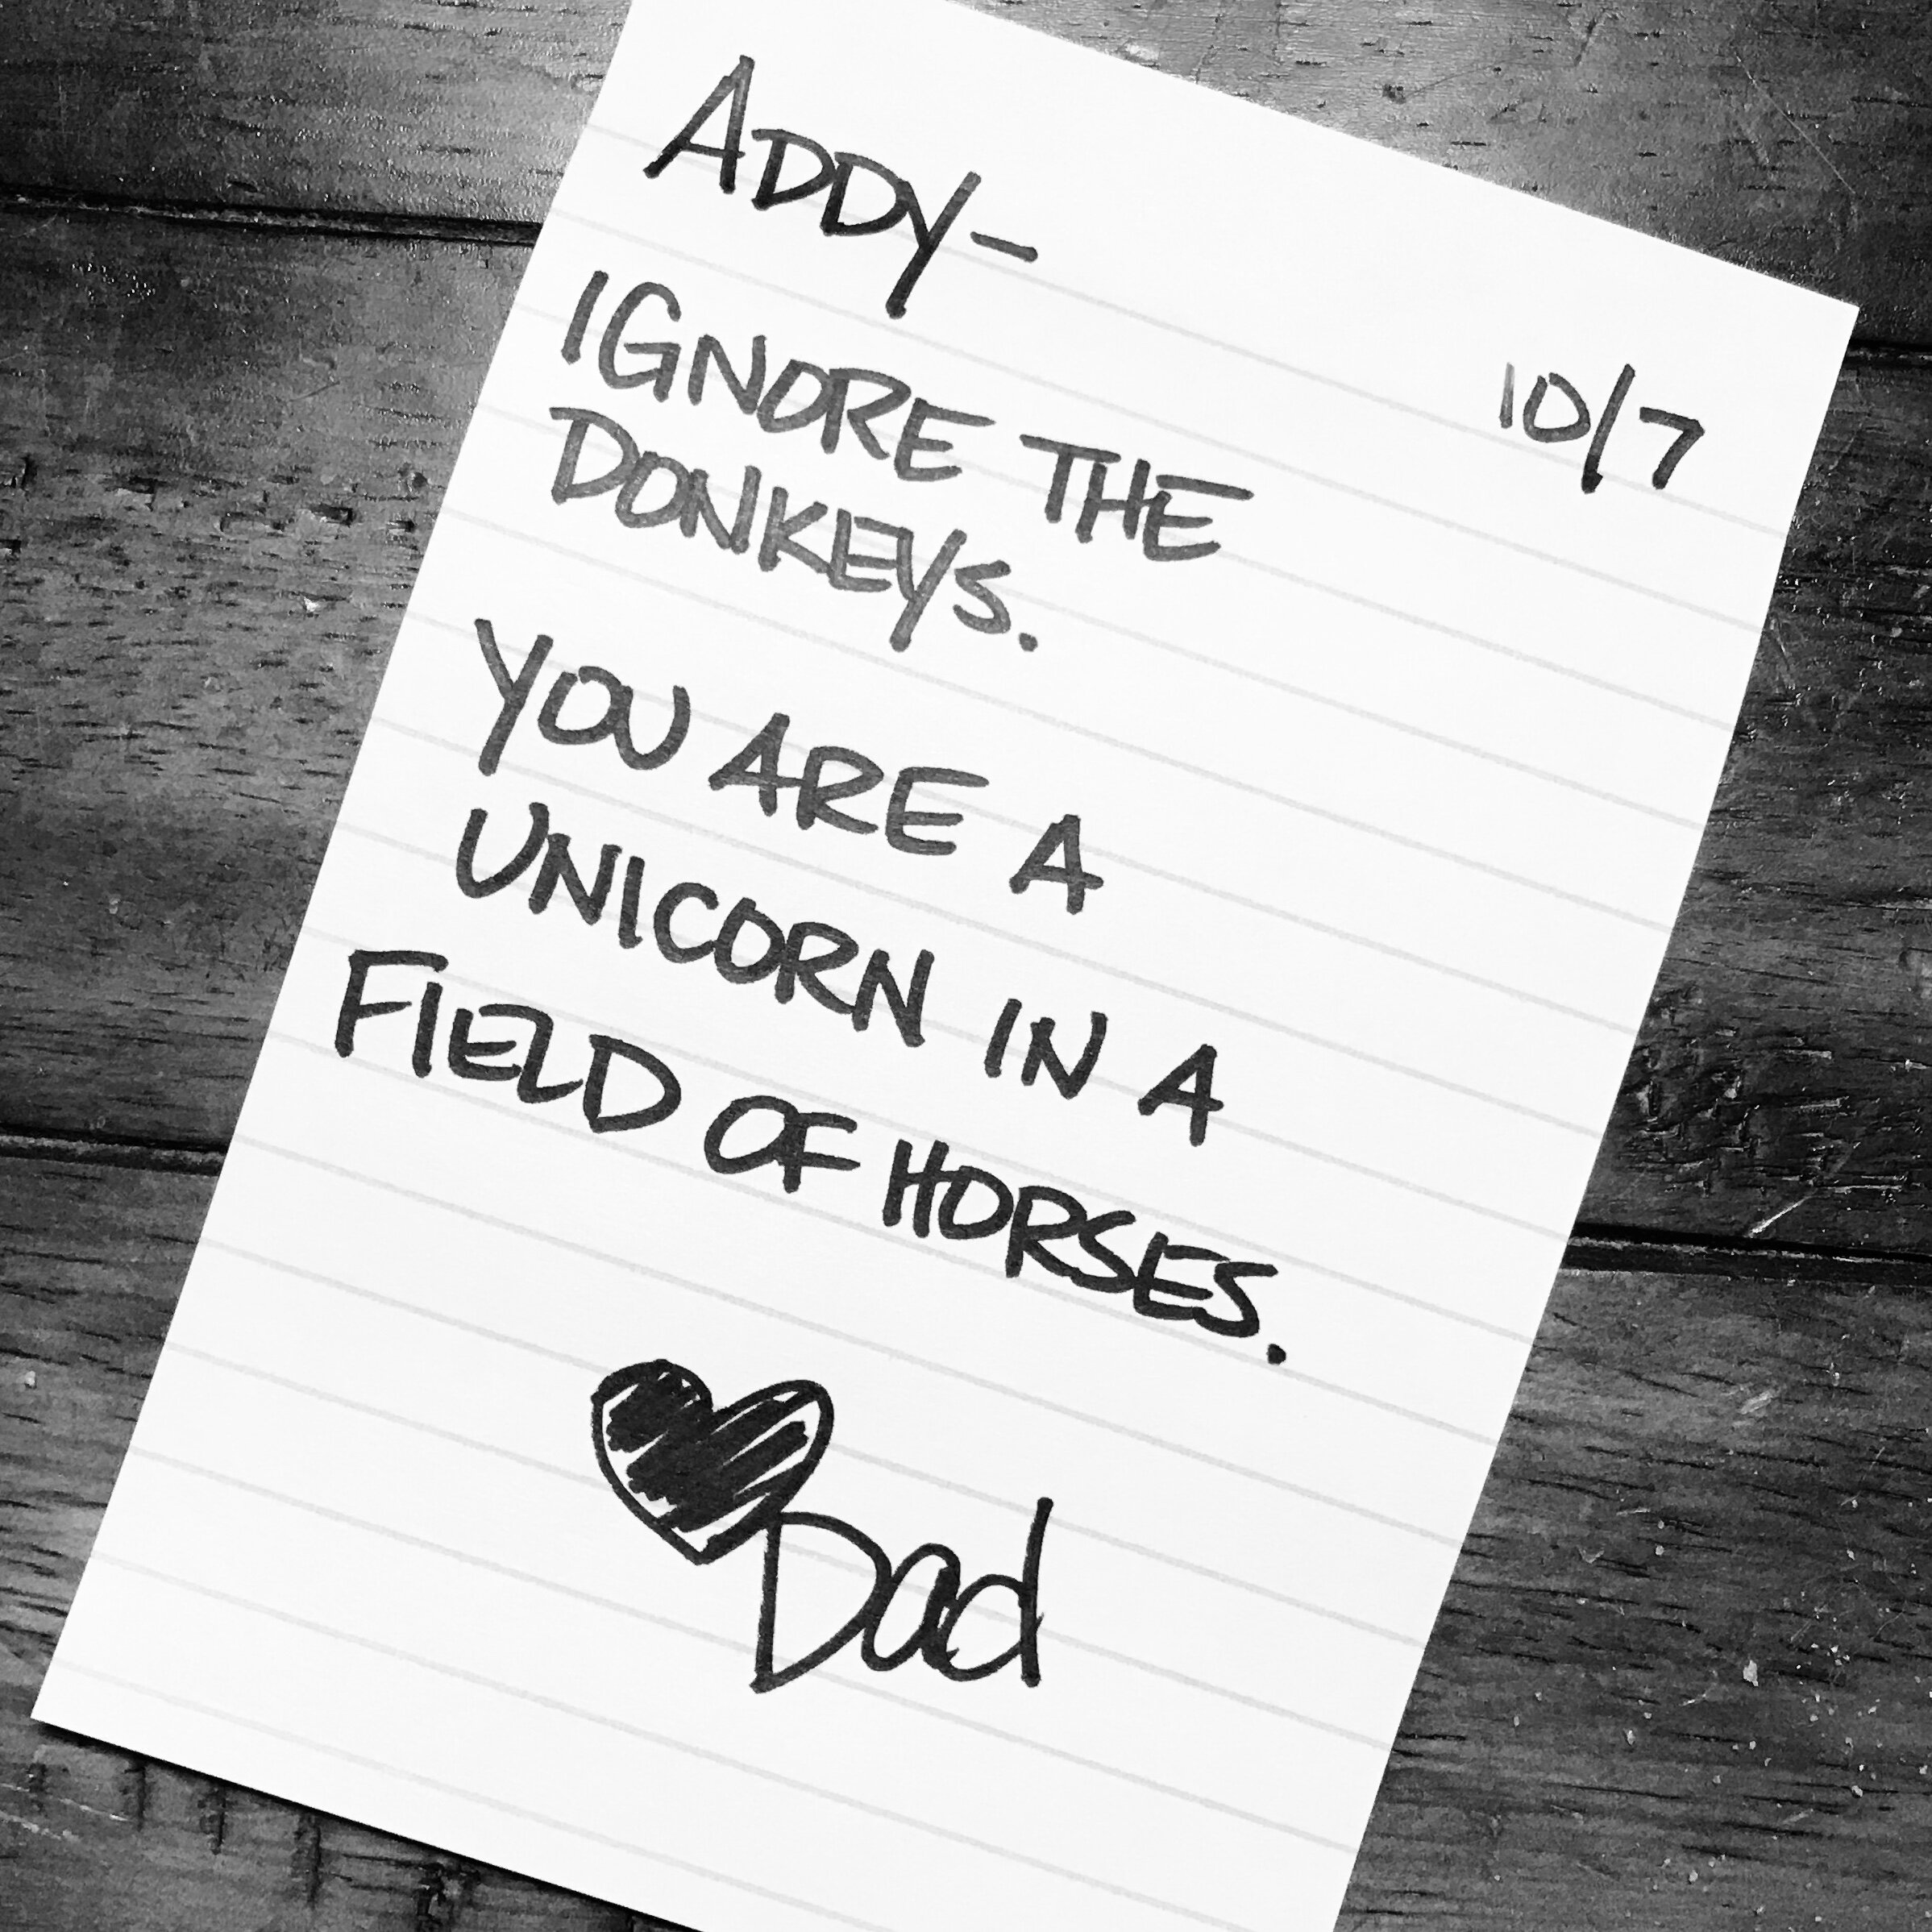 ADDY-
10/7
IGNORE THE
DONKEYS.
YOU ARE A
UNICORN IN A
FIELD OF HORSES.
Dad